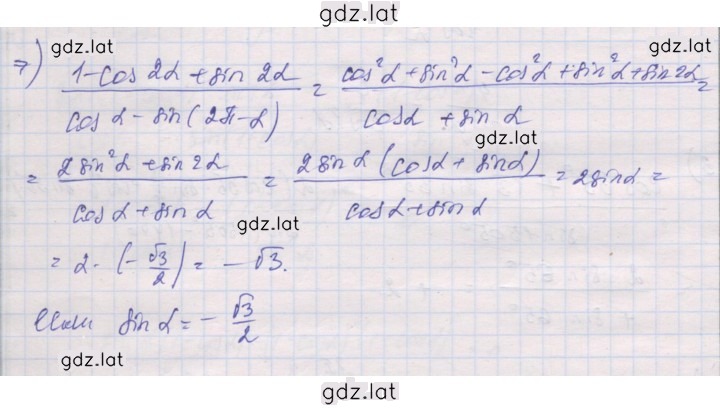 gdz.lat
gdz.lat gdz.lat
7) (1-cos 2α + sin 2α)/(cos α - sin(2π-α)) = (cos²α + sin²α - cos²α + sin²α + sin 2α)/(cosα + sin α) =
gdz.lat
= (2 sin²α + sin 2α)/(cos α + sin α) = (2 sin α (cosα + sinα))/(cosα + sin α) = 2 sin α =
gdz.lat
= 2 · (-√3/2) = -√3.
sin α = -√3/2
gdz.lat
gdz.lat